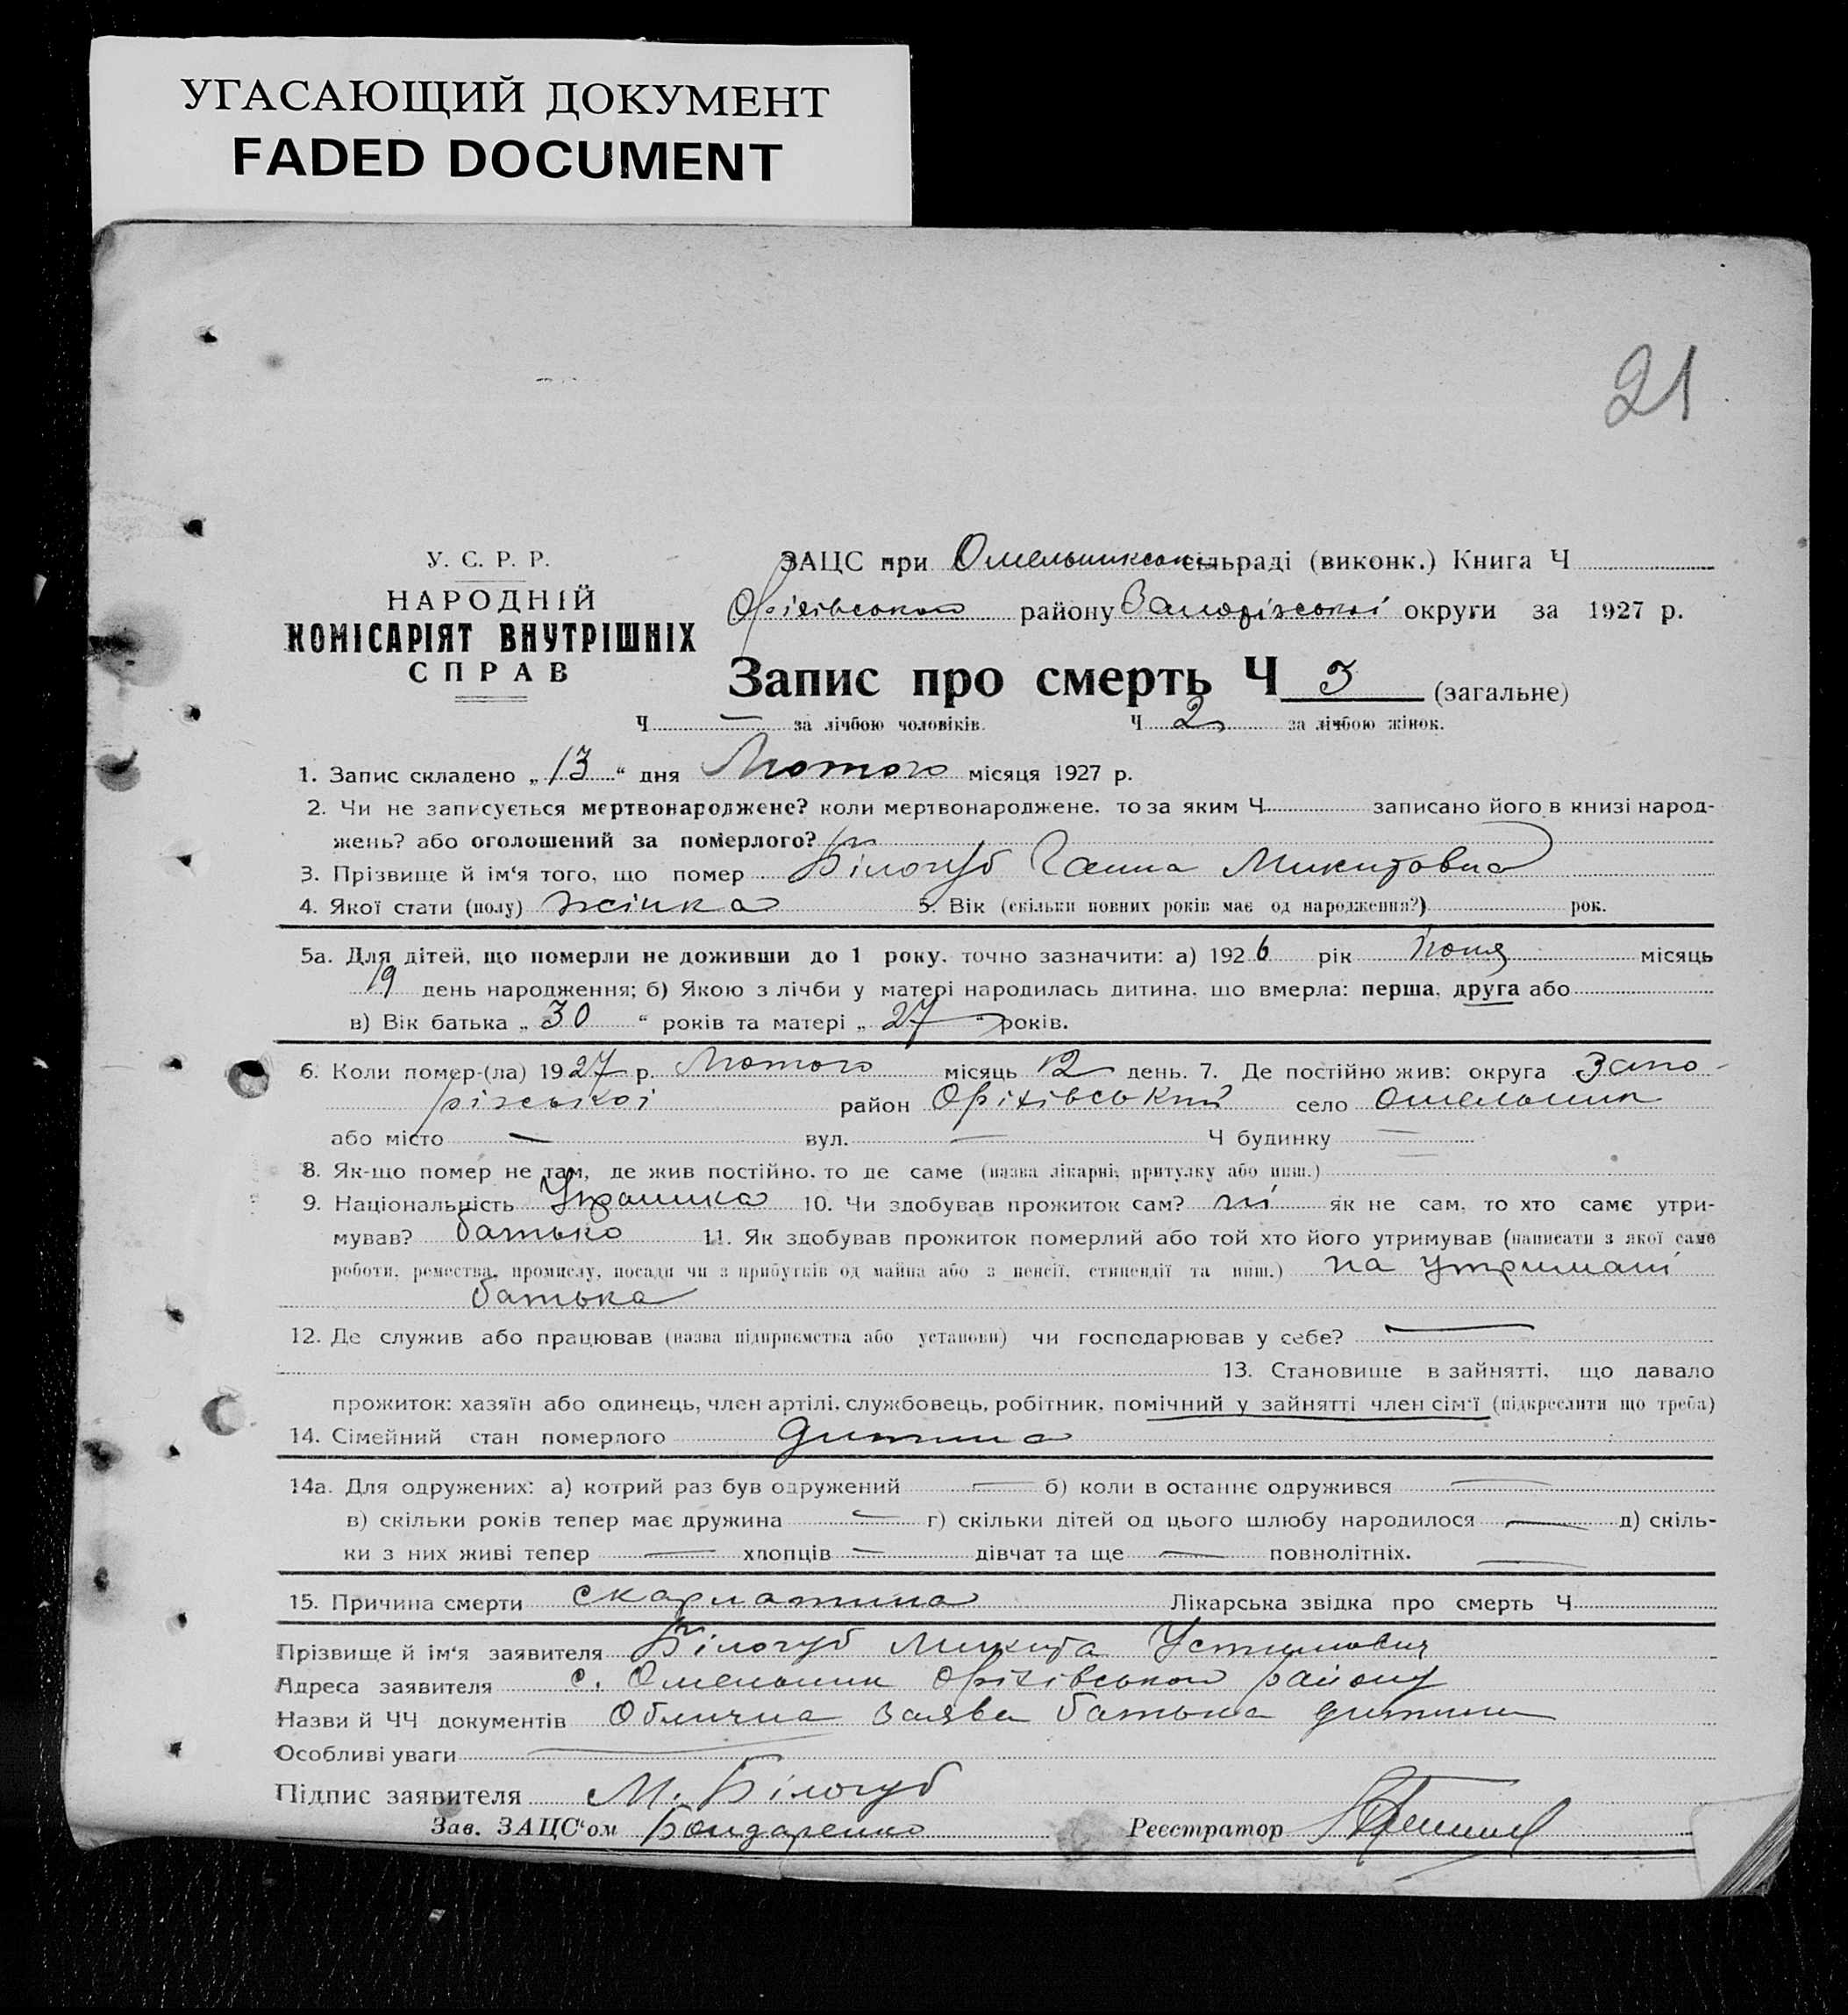 УГАСАЮЩИЙ ДОКУМЕНТ
FADED DOCUMENT
21
У. С. Р. Р.
НАРОДНІЙ
КОМІСАРІЯТ ВНУТРІШНІХ
СПРАВ
ЗАЦС при Омельникській сільраді (виконк.) Книга Ч
Оріхівського району Запорізської округи за 1927 р.
Запис про смерть Ч 3 (загальне)
Ч — за лічбою чоловіків. Ч 2 за лічбою жінок.
1. Запис складено „ 13 “ дня Лютого місяця 1927 р.
2. Чи не записується мертвонароджене? коли мертвонароджене, то за яким Ч записано його в книзі народ-
жень? або оголошений за померлого?
3. Прізвище й ім‘я того, що помер Білогуб Ганна Микитовна
4. Якої стати (полу) жінка 5. Вік (скільки повних років має од народження?) рок.
5а. Для дітей, що померли не доживши до 1 року, точно зазначити: а) 1926 рік місяць
19 день народження; б) Якою з лічби у матері народилась дитина, що вмерла: перша, друга або
в) Вік батька „ 30 “ років та матері „ 27 “ років.
6. Коли помер-(ла) 1927 р. Лютого місяць 12 день. 7. Де постійно жив: округа Запо-
різської район Оріхівський село Омельник
або місто — вул. — Ч будинку —
8. Як-що помер не там, де жив постійно, то де саме (назва лікарні, притулку або инш.)
9. Національність Українка 10. Чи здобував прожиток сам? ні як не сам, то хто саме утри-
мував? батько 11. Як здобував прожиток померлий або той хто його утримував (написати з якої саме
роботи, ремества, промислу, посади чи з прибутків од майна або з пенсії, стипендії та инш.) на утримані
батька
12. Де служив або працював (назва підприємства або установи) чи господарював у себе? —
13. Становище в зайнятті, що давало
прожиток: хазяїн або одинець, член артілі, службовець, робітник, помічний у зайнятті член сім‘ї (підкреслити що треба)
14. Сімейний стан померлого дитина
14а. Для одружених: а) котрий раз був одружений — б) коли в останнє одружився —
в) скільки років тепер має дружина — г) скільки дітей од цього шлюбу народилося — д) скіль-
ки з них живі тепер — хлопців — дівчат та ще — повнолітніх. —
15. Причина смерти скарлатина Лікарська звідка про смерть Ч
Прізвище й ім‘я заявителя Білогуб Микита Устимович
Адреса заявителя с. Омельник Оріхівського району
Назви й ЧЧ документів Облична заява батька дитини
Особливі уваги —
Підпис заявителя М. Білогуб
Зав. ЗАЦС“ом Бондаренко Реєстратор